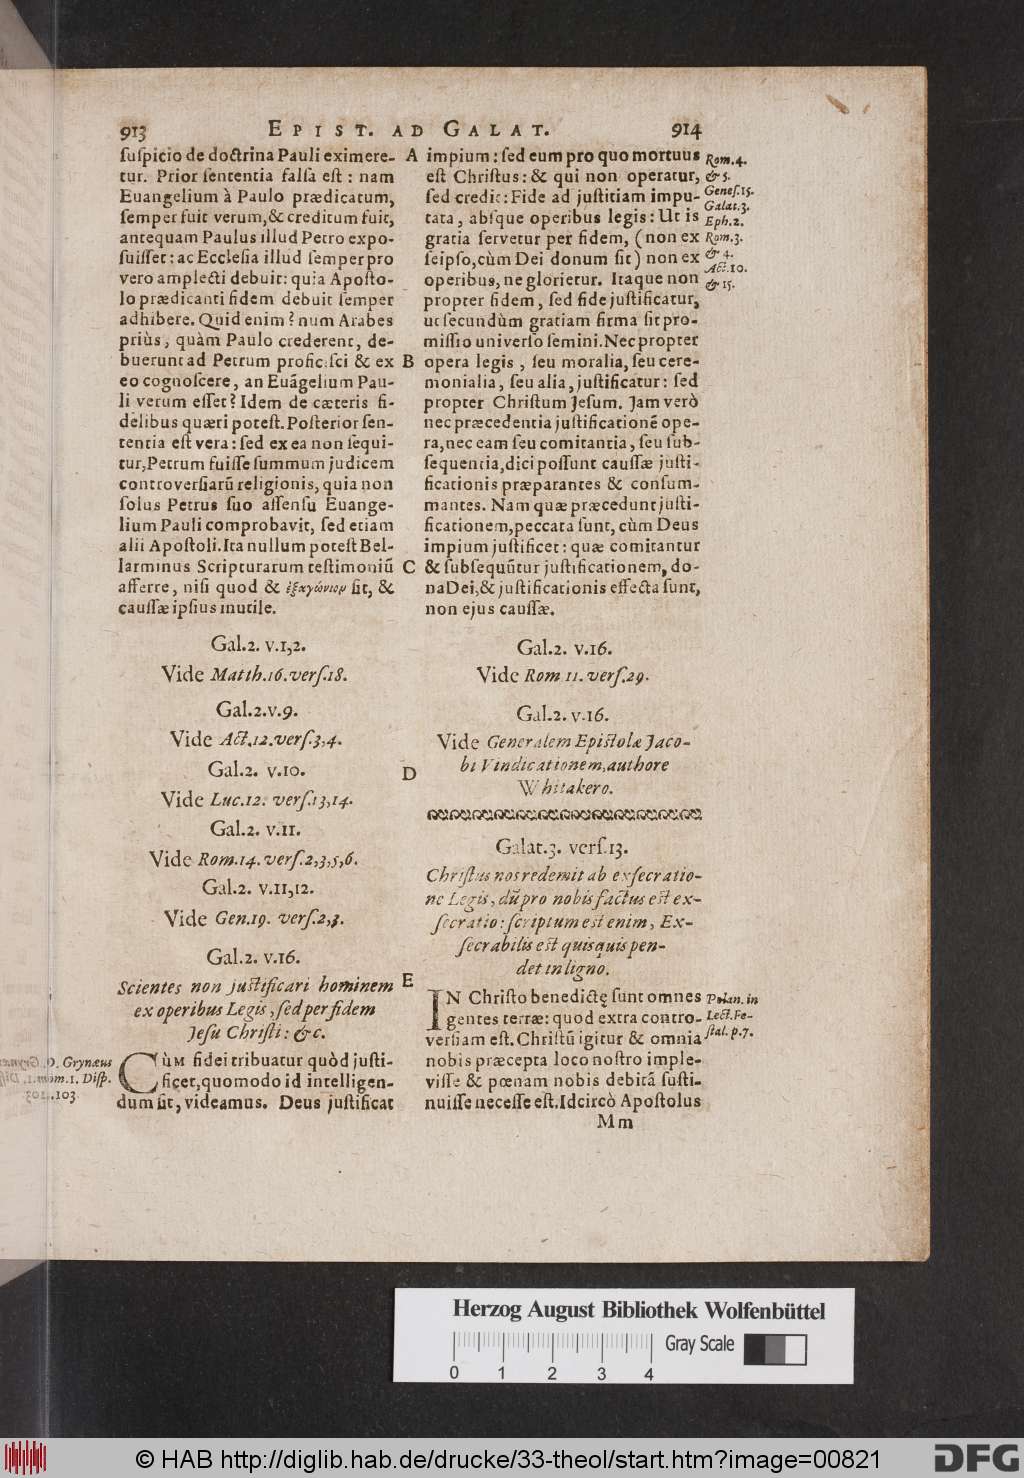 913 EPIST. AD GALAT. 914
suſpicio de doctrina Pauli eximere-
tur. Prior ſententia falſa eſt: nam
Euangelium à Paulo prædicatum,
ſemper fuit verum, & creditum fuit,
antequam Paulus illud Petro expo-
ſuiſſet: ac Eccleſia illud ſemper pro
vero amplecti debuit: quia Apoſto-
lo prædicanti fidem debuit ſemper
adhibere. Quid enim? num Arabes
priùs, quàm Paulo crederent, de-
buerunt ad Petrum proficiſci & ex
eo cognoſcere, an Euãgelium Pau-
li verum eſſet? Idem de cæteris fi-
delibus quæri poteſt. Poſterior ſen-
tentia eſt vera: ſed ex ea non ſequi-
tur, Petrum fuiſſe ſummum judicem
controverſiarũ religionis, quia non
ſolus Petrus ſuo aſſenſu Euange-
lium Pauli comprobavit, ſed etiam
alii Apoſtoli. Ita nullum poteſt Bel-
larminus Scripturarum teſtimoniũ
afferre, niſi quod & ἐξαγώνιον ſit, &
cauſſæ ipſius inutile.
Gal.2. v.1,2.
Vide Matth.16.verſ.18.
Gal.2.v.9.
Vide Act.12.verſ.3,4.
Gal.2. v.10.
Vide Luc.12. verſ.13,14.
Gal.2. v.11.
Vide Rom.14. verſ.2,3,5,6.
Gal.2. v.11,12.
Vide Gen.19. verſ.2,3.
Gal.2. v.16.
Scientes non juſtificari hominem
ex operibus Legis, ſed per fidem
Jeſu Chriſti: &c.
D. Grynæus
tom.1. Diſp.
103.
CÙM fidei tribuatur quòd juſti-
ficet, quomodo id intelligen-
dum ſit, videamus. Deus juſtificat
A
B
C
D
E
impium: ſed eum pro quo mortuus
eſt Chriſtus: & qui non operatur,
ſed credit: Fide ad juſtitiam impu-
tata, abſque operibus legis: Ut is
gratia ſervetur per fidem, (non ex
ſeipſo, cùm Dei donum ſit) non ex
operibus, ne glorietur. Itaque non
propter fidem, ſed fide juſtificatur,
ut ſecundùm gratiam firma ſit pro-
miſſio univerſo ſemini. Nec propter
opera legis, ſeu moralia, ſeu cere-
monialia, ſeu alia, juſtificatur: ſed
propter Chriſtum Jeſum. Jam verò
nec præcedentia juſtificationẽ ope-
ra, nec eam ſeu comitantia, ſeu ſub-
ſequentia, dici poſſunt cauſſæ juſti-
ficationis præparantes & conſum-
mantes. Nam quæ præcedunt juſti-
ficationem, peccata ſunt, cùm Deus
impium juſtificet: quæ comitantur
& ſubſequũtur juſtificationem, do-
na Dei, & juſtificationis effecta ſunt,
non ejus cauſſæ.
Rom.4.
& 5.
Geneſ.15.
Galat.3.
Eph.2.
Rom.3.
& 4.
Act.10.
& 15.
Gal.2. v.16.
Vide Rom 11. verſ.29.
Gal.2. v.16.
Vide Generalem Epiſtolæ Jaco-
bi Vindicationem, authore
Whitakero.
Galat.3. verſ.13.
Chriſtus nos redemit ab exſecratio-
ne Legis, dũ pro nobis factus eſt ex-
ſecratio: ſcriptum eſt enim, Ex-
ſecrabilis eſt quisquis pen-
det in ligno.
IN Chriſto benedictę ſunt omnes
gentes terræ: quod extra contro-
verſiam eſt. Chriſtũ igitur & omnia
nobis præcepta loco noſtro imple-
viſſe & pœnam nobis debitã ſuſti-
nuiſſe neceſſe eſt. Idcircò Apoſtolus
Polan. in
Lect. Fe-
ſtal. p.7.
Mm
Herzog August Bibliothek Wolfenbüttel
Gray Scale
0 1 2 3 4
© HAB http://diglib.hab.de/drucke/33-theol/start.htm?image=00821
DFG